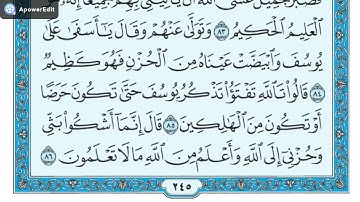 ApowerEdit
فَصَبْرٌ جَمِيلٌ عَسَى ٱللَّهُ أَن يَأْتِيَنِي بِهِمْ جَمِيعًا إِنَّهُۥ هُوَ
ٱلْعَلِيمُ ٱلْحَكِيمُ ٨٣ وَتَوَلَّىٰ عَنْهُمْ وَقَالَ يَٰٓأَسَفَىٰ عَلَىٰ
يُوسُفَ وَٱبْيَضَّتْ عَيْنَاهُ مِنَ ٱلْحُزْنِ فَهُوَ كَظِيمٌ
٨٤ قَالُوا۟ تَٱللَّهِ تَفْتَؤُا۟ تَذْكُرُ يُوسُفَ حَتَّىٰ تَكُونَ حَرَضًا
أَوْ تَكُونَ مِنَ ٱلْهَٰلِكِينَ ٨٥ قَالَ إِنَّمَآ أَشْكُوا۟ بَثِّي
وَحُزْنِيٓ إِلَى ٱللَّهِ وَأَعْلَمُ مِنَ ٱللَّهِ مَا لَا تَعْلَمُونَ ٨٦
٢٤٥